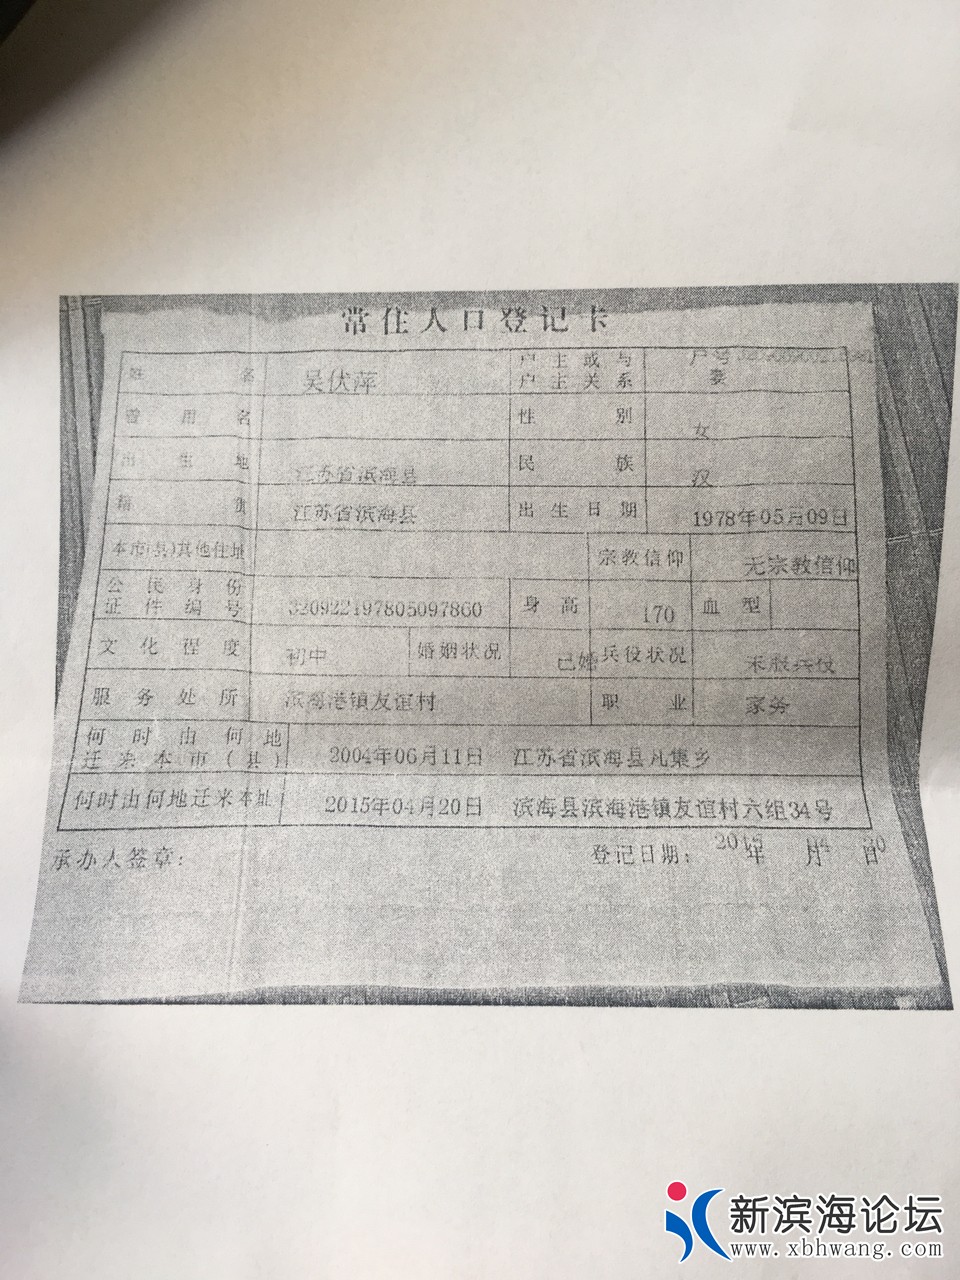 常住人口登记卡
户号
姓名 吴伏萍 户主或与户主关系 妻
曾用名 性别 女
出生地 江苏省滨海县 民族 汉
籍贯 江苏省滨海县 出生日期 1978年05月09日
本市(县)其他住址 宗教信仰 无宗教信仰
公民身份证件编号 320922197805097860 身高 170 血型
文化程度 初中 婚姻状况 已婚 兵役状况 未服兵役
服务处所 滨海港镇友谊村 职业 家务
何时由何地迁来本市(县) 2004年06月11日 江苏省滨海县凡集乡
何时由何地迁来本址 2015年04月20日 滨海县滨海港镇友谊村六组34号
承办人签章: 登记日期: 年 月 日
新滨海论坛
www.xbhwang.com